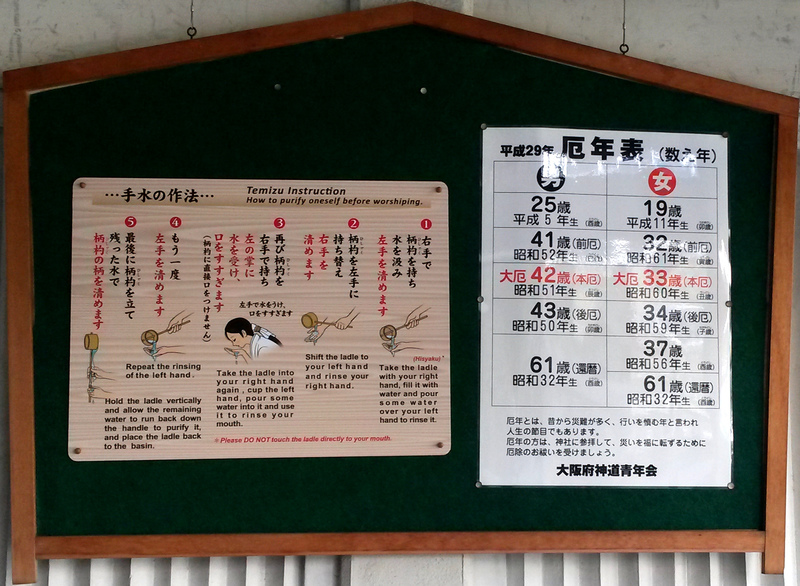 …手水の作法…
Temizu Instruction
How to purify oneself before worshiping.
1
右手で
柄杓を持ち
水を汲み
左手を清めます
(Hisyaku)
Take the ladle
with your right
hand, fill it with
water and pour
some water
over your left
hand to rinse it.
2
柄杓を左手に
持ち替え
右手を
清めます
Shift the ladle to
your left hand
and rinse your
right hand.
3
再び柄杓を
右手で持ち
左の掌に
水を受け、
口をすすぎます
(柄杓に直接口をつけません)
左手で水をうけ、
口をすすぎます
Take the ladle into
your right hand
again , cup the left
hand, pour some
water into it and use
it to rinse your
mouth.
4
もう一度
左手を清めます
Repeat the rinsing
of the left hand .
5
最後に柄杓を立て
残った水で
柄杓の柄を清めます
Hold the ladle vertically
and allow the remaining
water to run back down
the handle to purify it,
and place the ladle back
to the basin.
※Please DO NOT touch the ladle directly to your mouth.
平成29年 厄年表 (数え年)
男
25歳
平成5年生 (酉歳)
41歳(前厄)
昭和52年生 (巳歳)
大厄 42歳(本厄)
昭和51年生 (辰歳)
43歳(後厄)
昭和50年生 (卯歳)
61歳(還暦)
昭和32年生 (酉歳)
女
19歳
平成11年生 (卯歳)
32歳(前厄)
昭和61年生 (寅歳)
大厄 33歳(本厄)
昭和60年生 (丑歳)
34歳(後厄)
昭和59年生 (子歳)
37歳
昭和56年生 (酉歳)
61歳(還暦)
昭和32年生 (酉歳)
厄年とは、昔から災難が多く、行いを慎む年と言われ
人生の節目でもあります。
厄年の方は、神社に参拝して、災いを福に転ずるために
厄除のお祓いを受けましょう。
大阪府神道青年会